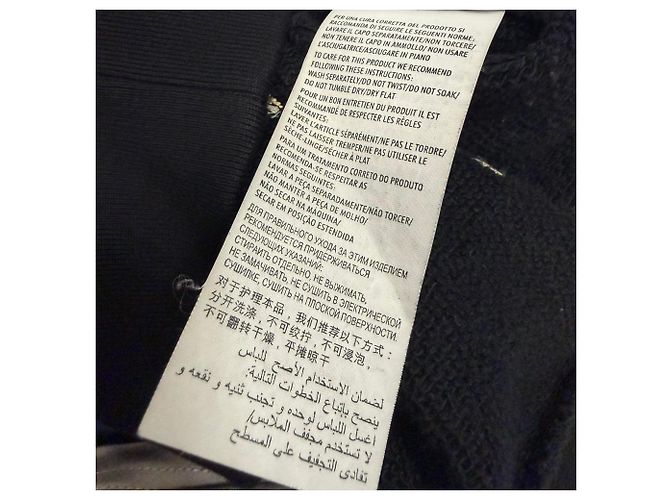 PER UNA CURA CORRETTA DEL PRODOTTO SI
RACCOMANDA DI SEGUIRE LE SEGUENTI NORME.
LAVARE IL CAPO SEPARATAMENTE/NON TORCERE/
NON TENERE IL CAPO IN AMMOLLO/ NON USARE
L'ASCIUGATRICE/ASCIUGARE IN PIANO
TO CARE FOR THIS PRODUCT WE RECOMMEND
FOLLOWING THESE INSTRUCTIONS:
WASH SEPARATELY/DO NOT TWIST/DO NOT SOAK/
DO NOT TUMBLE DRY/DRY FLAT
POUR UN BON ENTRETIEN DU PRODUIT IL EST
RECOMMANDÉ DE RESPECTER LES RÈGLES
SUIVANTES:
LAVER L'ARTICLE SÉPARÉMENT/NE PAS LE TORDRE/
NE PAS LAISSER TREMPER/NE PAS UTILISER LE
SÈCHE-LINGE/SÉCHER À PLAT
PARA UM TRATAMENTO CORRETO DO PRODUTO
RECOMENDA-SE RESPEITAR AS
NORMAS SEGUINTES:
LAVAR A PEÇA SEPARADAMENTE/NÃO TORCER/
NÃO MANTER A PEÇA DE MOLHO/
NÃO SECAR NA MÁQUINA/
SECAR EM POSIÇÃO ESTENDIDA
ДЛЯ ПРАВИЛЬНОГО УХОДА ЗА ЭТИМ ИЗДЕЛИЕМ
РЕКОМЕНДУЕТСЯ ПРИДЕРЖИВАТЬСЯ
СЛЕДУЮЩИХ УКАЗАНИЙ:
СТИРАЙТЬ ОТДЕЛЬНО, НЕ ВЫЖИМАТЬ,
НЕ ЗАМАЧИВАТЬ, НЕ СУШИТЬ В ЭЛЕКТРИЧЕСКОЙ
СУШИЛКЕ, СУШИТЬ НА ПЛОСКОЙ ПОВЕРХНОСТИ.
对于护理本品，我们推荐以下方式：
分开洗涤，不可绞拧，不可浸泡，
不可翻转干燥，平摊晾干
لضمان الاستخدام الأصح للباس
ينصح بإتباع الخطوات التالية:
اغسل اللباس لوحده و تجنب ثنيه و نقعه و
لا تستخدم مجفف الملابس/
تفادى التجفيف على المسطح